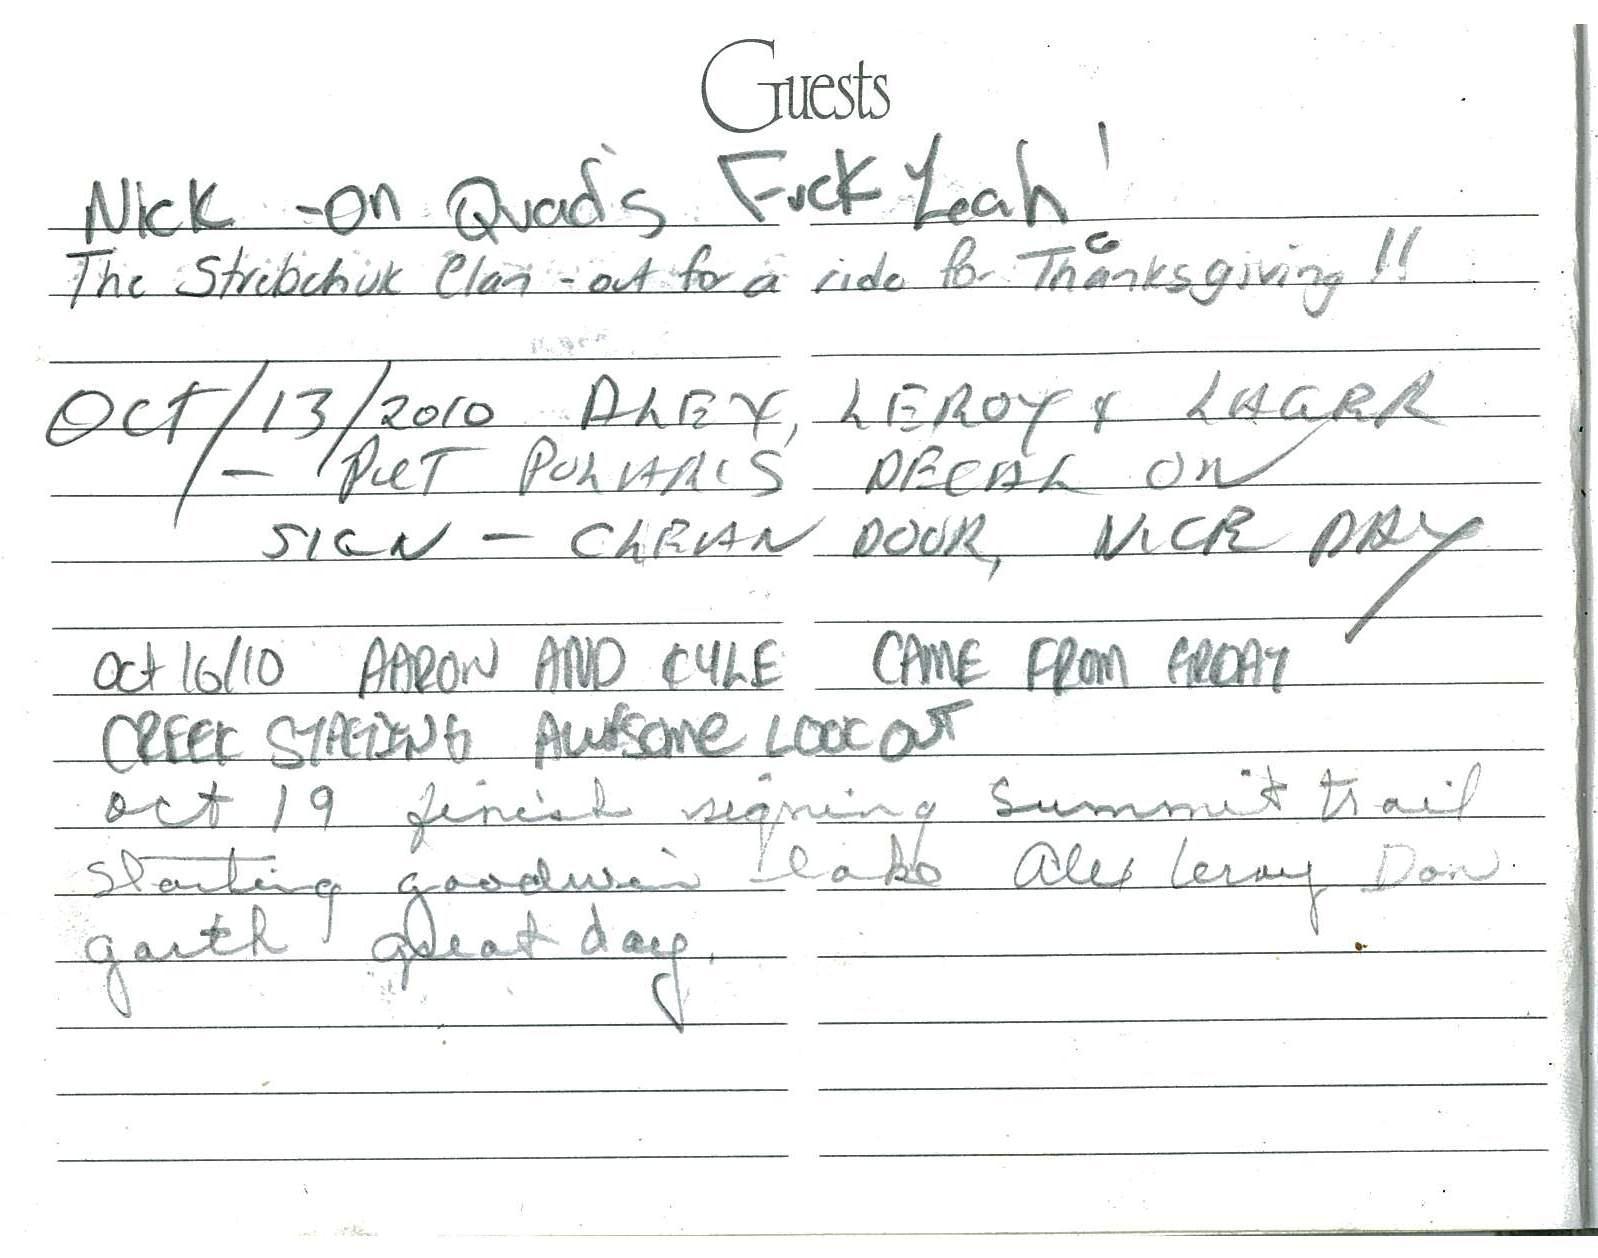 Guests
Nick - on Quad's Fuck Yeah!
The Strebchuk Clan - out for a ride for Thanksgiving!!
Oct/13/2010 ALEX, LEROY &
- PUT POLARIS DECAL ON
SIGN - CLEAN DOOR, NICE DAY
Oct 16/10 AARON AND CYLE CAME FROM
CREEK STAGING AWESOME LOOCOUT
oct 19 finish signing Summit trail
starting goodwin lake Alex Leroy Don
garth great day.